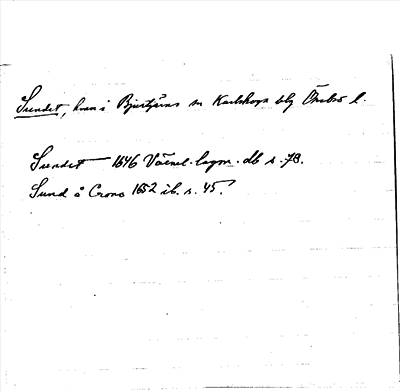 Sundet, kvarn i Bjurtjärns sn Karlskoga blg Örebro l.
Sundet — 1646 Värml. lagm. db s. 73.
Sund å Crono 1652 ib. s. 45.